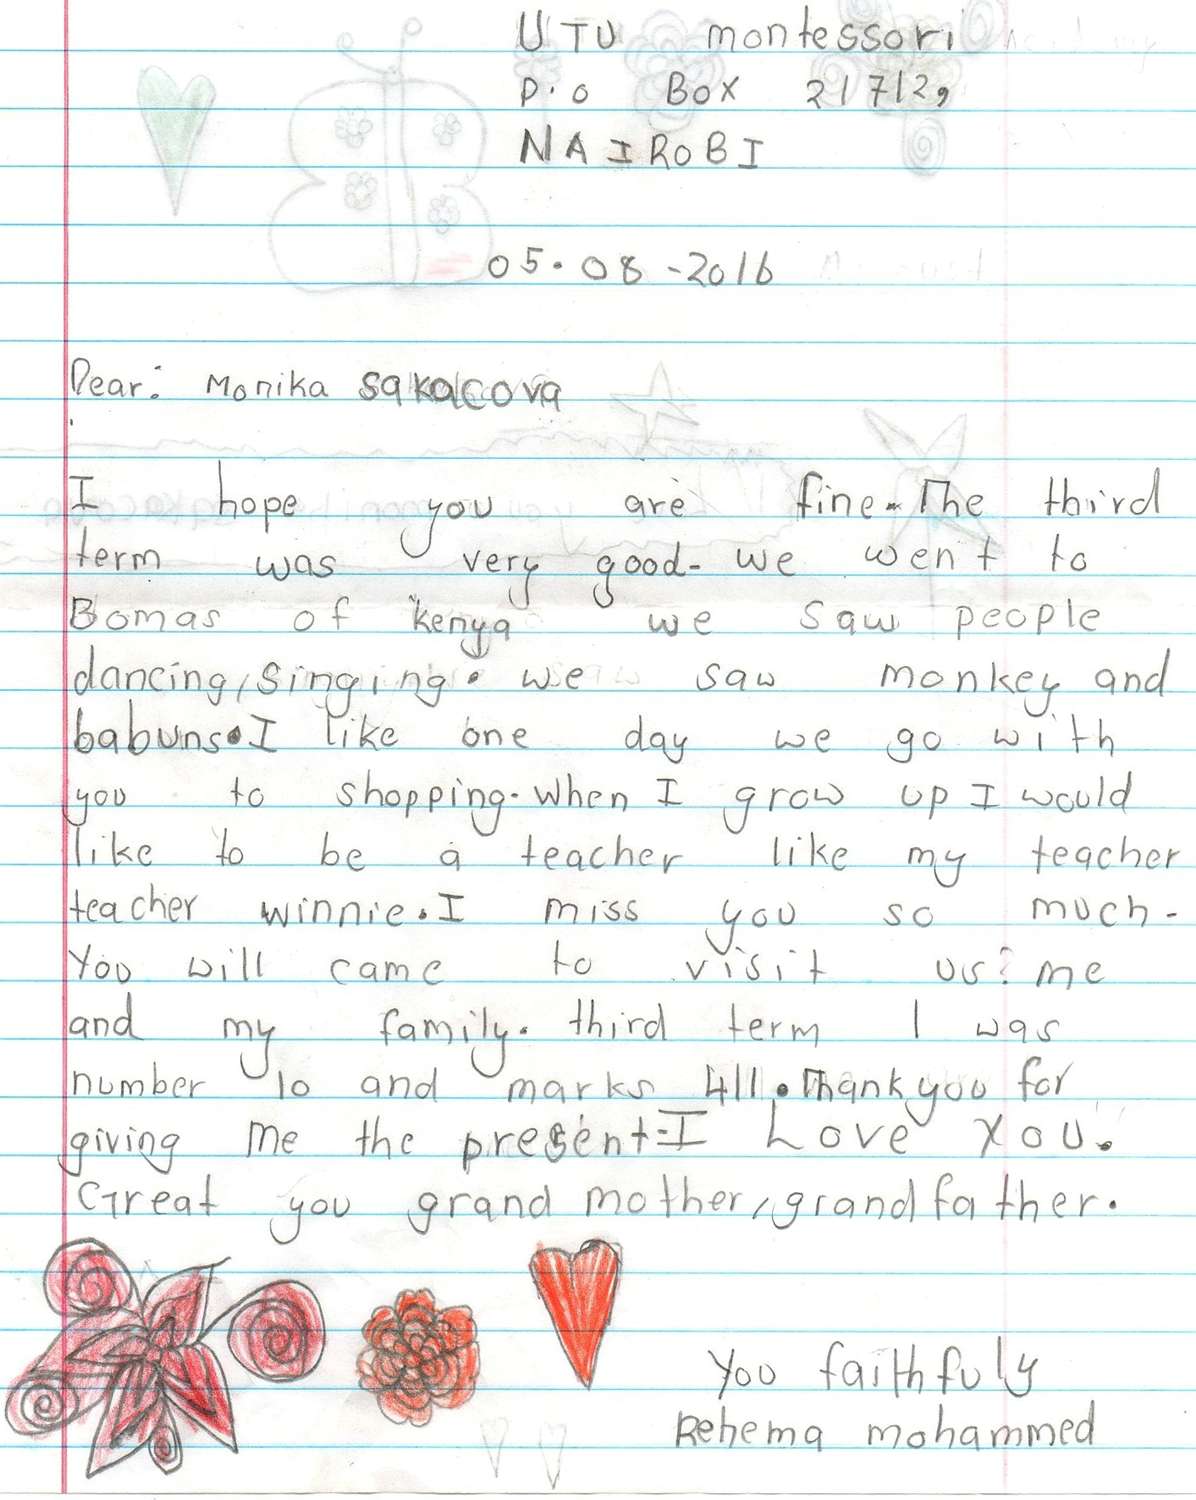 UTU montessori
P.o Box 21712,
NAIROBI
05.08-2016
Dear: Monika sakacova
I hope you are fine. The third
term was very good. we went to
Bomas of kenya we saw people
dancing, singing. we saw monkey and
babuns. I like one day we go with
you to shopping. when I grow up I would
like to be a teacher like my teacher
teacher winnie. I miss you so much.
You will came to visit us? me
and my family. third term I was
number 10 and marks 411. Thank you for
giving me the present. I Love You.
Great you grand mother, grandfather.
You faithfuly
Rehema mohammed